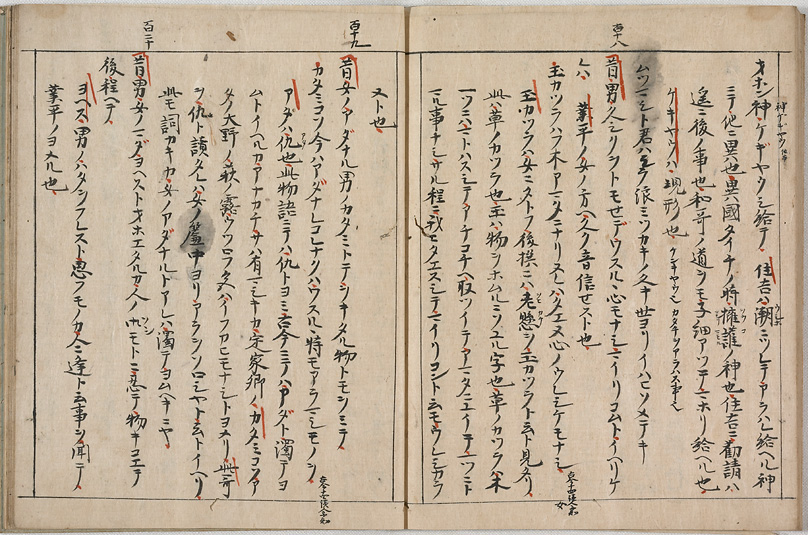 百十八
オホン神ケギヤウシ給テ 住吉ハ潮ニツレテアラハレ給ヘル神
ミテ他ニ異也異國タイチノ時擁護ノ神也住吉ニ勧請ハ
遥ニ後ノ事也和哥ノ道ヲモ子細アツテマホリ給ヘル也
ケキヤウハ現形也
ムツマシト君ハシラ浪ミツカキノ久キ世ヨリイハヒソメテキ
昔男久シクヲトモせデワスルヽ心モナシマイリコムトイヘリケ
レハ 業平ノ女ノ方ヘ久ク音信せスト也
玉カツラハフ木アマタニナリヌレハタエヌ心ノウレシケモナシ
玉カツラハ女ニタトフ後撰ニハ老懸ヲ玉カツラト云ト見タリ
此ハ草ノカツラ也玉ハ物ヲホムルニソユル字也草ノカツラハ木
一ツニハトハスシテアチコチヘ取ツイテアマタニエイテ一ツニト
マル事ナシサル程ニ我モタエスシテマイリコント云モウレシカラ
ヌト也
百十九
昔女ノアダナル男ノカタミトテヲキタル物トモヲミテ
カタミコソ今ハアダナレコレナクハワスルヽ時モアラマシモノヲ
アダハ仇也此物語ニテハ仇トヨミ古今ニテハアダト濁テヨ
ムトイヘルカアナカチサハ有マシキカ定家卿ノカタミコソア
タノ大野ノ萩ノ露ウツロフ色ハイフカヒモナシトヨメリ此哥
ヲ仇ト讀タレハ女ノ簾中ヨリアラヲソロシヤト云トイヘリ
此モ詞カキカ女ノアダナルトアレハ濁テヨムヘキニヤ
百二十
昔男女ノマダヨヘストオホエタルカ人ノ御モトニ忍テ物キコエテ
後程ヘテ
ヨヘス男ノハタシフレスト思フモノカ人ニ逢ト云事ヲ聞テ
業平ノヨメル也